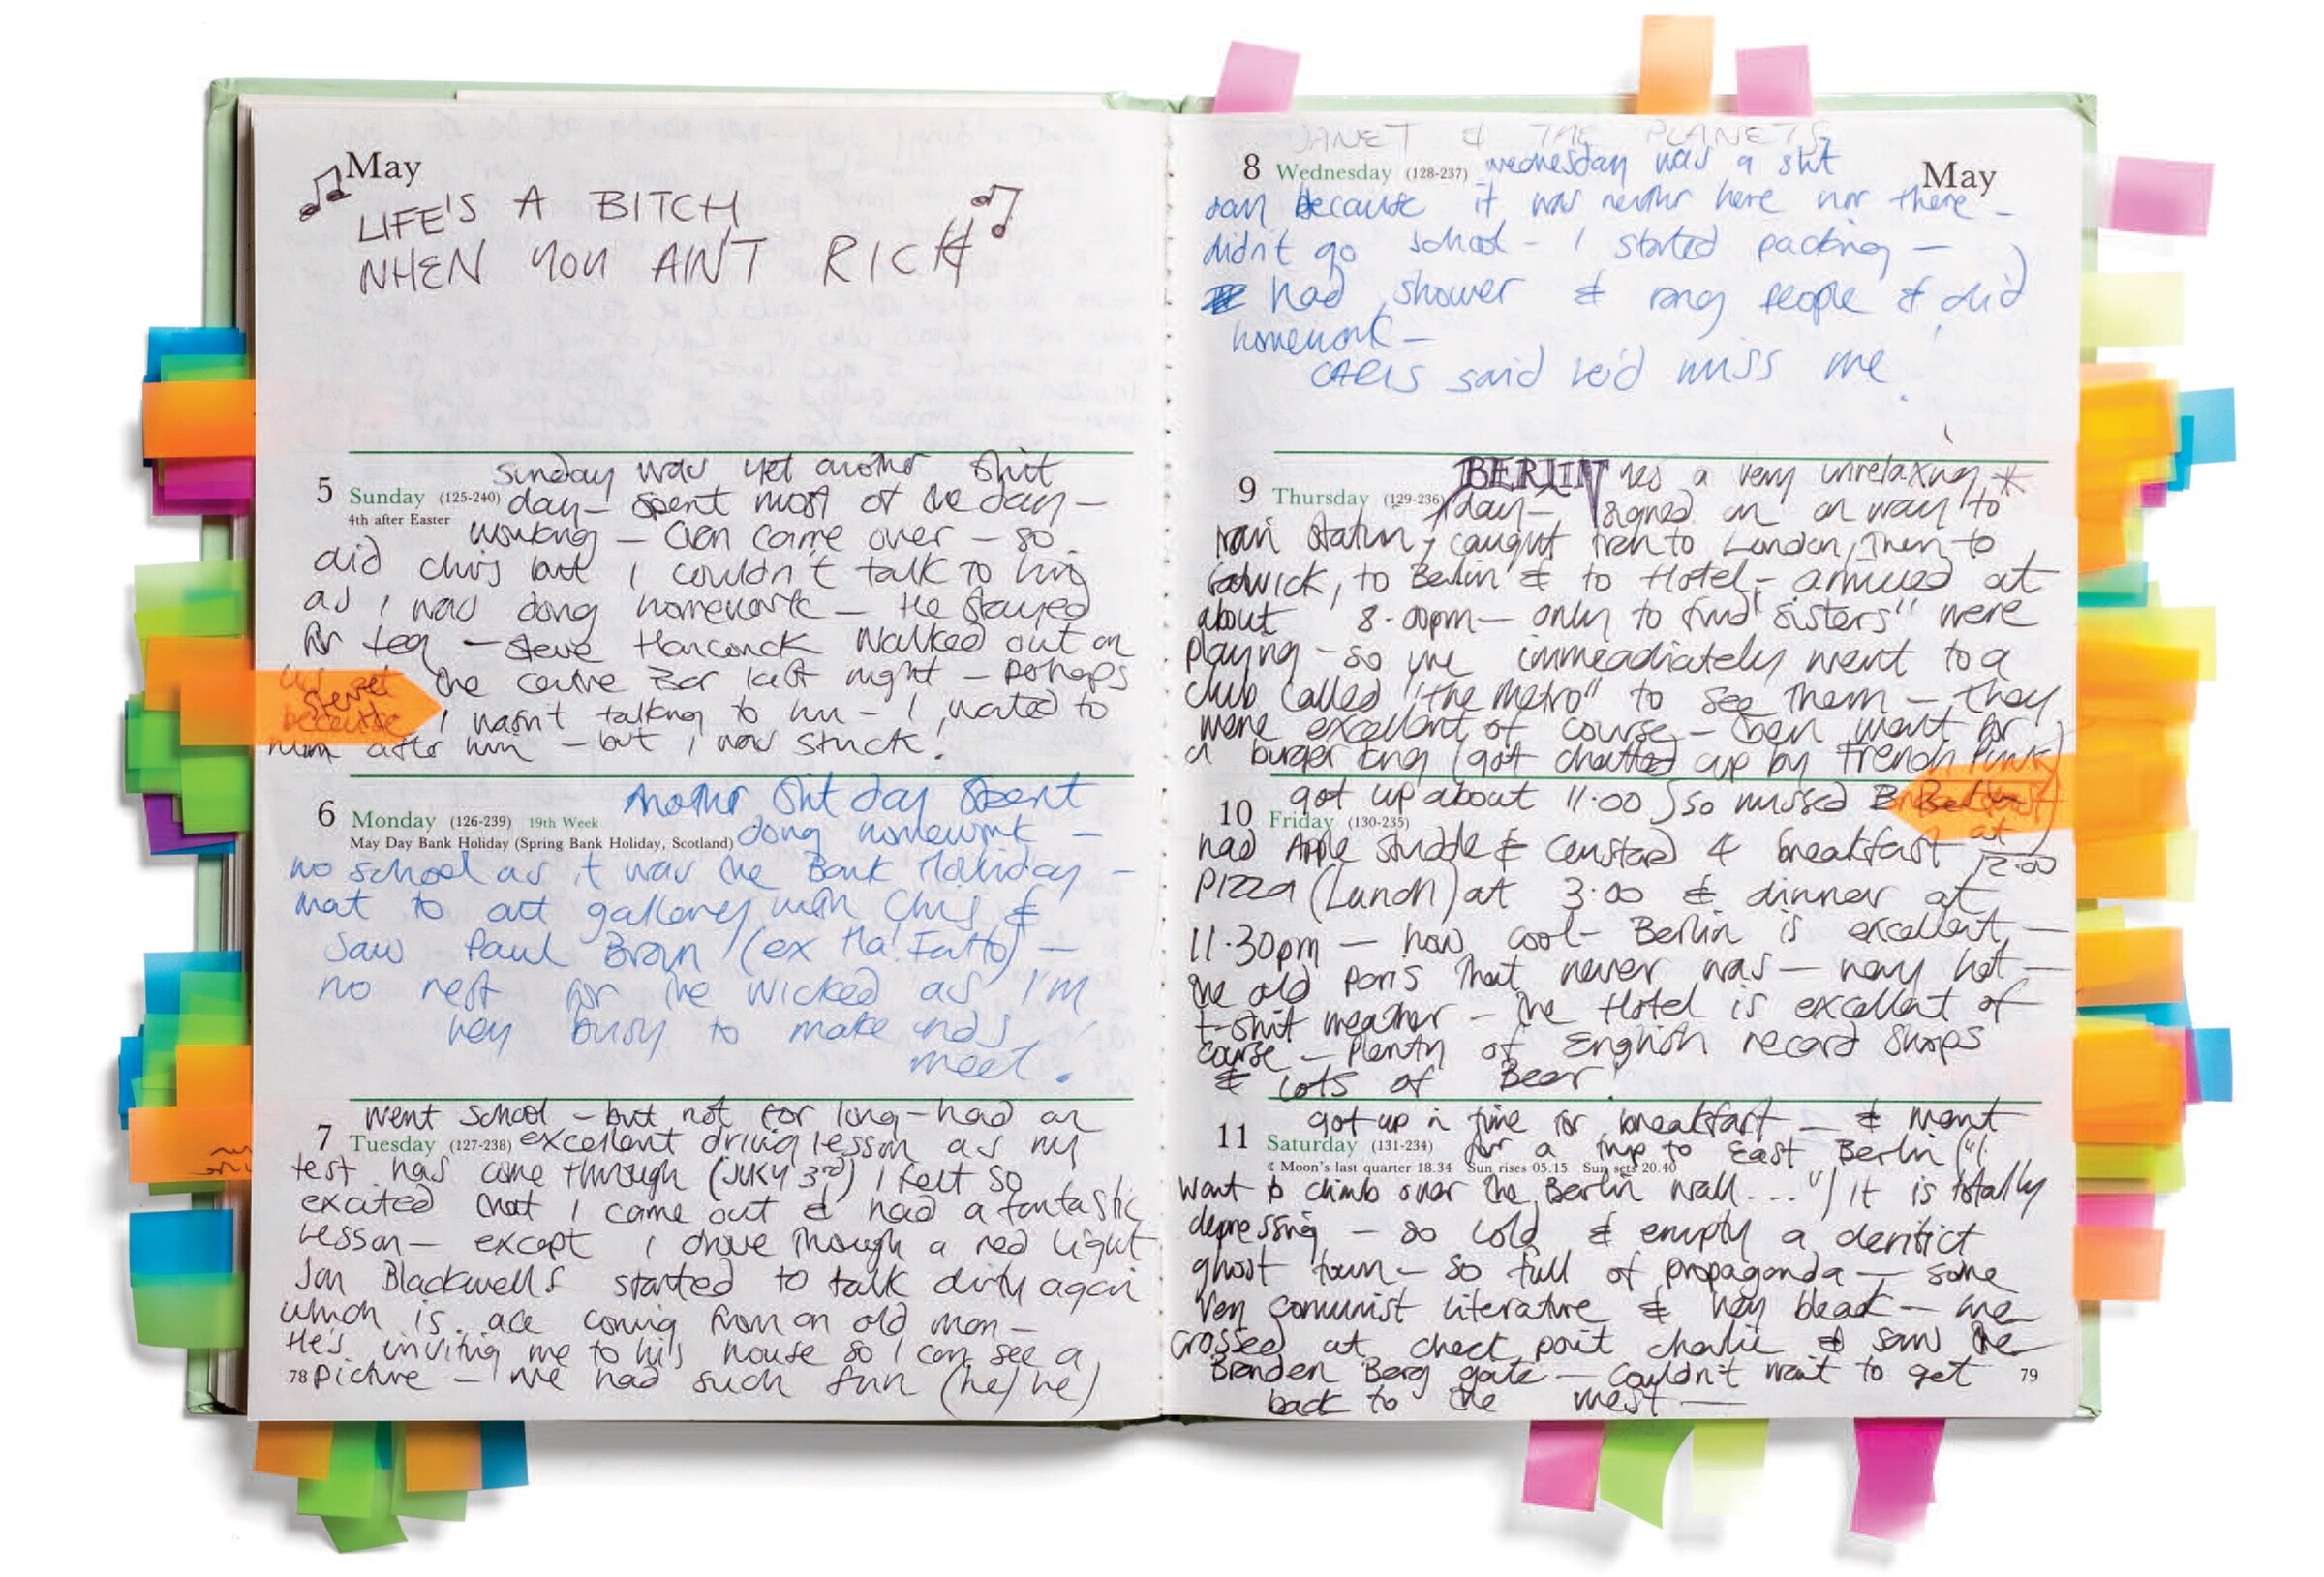 May
LIFE'S A BITCH
WHEN YOU AIN'T RICH
Sunday was yet another shit
5 Sunday (125-240) day — spent most of the day —
4th after Easter
working — came over — so
did chris but I couldn't talk to him
as I was doing homework — He stayed
for tea — Steve Hancock walked out on
us at the centre Bar last night — perhaps
secret
because I wasn't talking to him — I wanted to
run after him — but I was stuck!
Another shit day spent
6 Monday (126-239) 19th Week
doing homework —
May Day Bank Holiday (Spring Bank Holiday, Scotland)
no school as it was the Bank Holiday —
went to art gallery with Chris &
saw Paul (ex Ha! Fatto) —
no rest for the wicked as I'm
very busy to make ends
meet.
Went school — but not for long — had an
7 Tuesday (127-238) excellent driving lesson as my
test has come through (JULY 3rd) I felt so
excited that I came out & had a fantastic
lesson — except I drove through a red light
Jan Blackwell started to talk dirty again
which is ace coming from an old man —
He's inviting me to his house so I can see a
78 picture — we had such fun (he/he)
JANET & THE PLANETS
8 Wednesday (128-237) wednesday was a shit
May
day because it was neither here nor there —
didn't go school — I started packing —
had shower & rang people & did
homework —
CHRIS said he'd miss me
BERLIN yes a very unrelaxing
9 Thursday (129-236) day — signed on on way to
train station, caught train to London, then to
Gatwick, to Berlin & to Hotel — arrived at
about 8.00pm — only to find "sisters" were
playing — so we immeadiately went to a
club called "the Metro" to see them — they
were excellent of course — then went for
a burger king (got chatted up by French Punk)
got up about 11.00 so missed Breakfast
10 Friday (130-235)
had Apple strudle & Custard & breakfast at 12.00
PIZZA (Lunch) at 3.00 & dinner at
11.30pm — how cool — Berlin is excellent —
the old Paris that never was — very hot —
t-shirt weather — the Hotel is excellent of
course — Plenty of English record shops
& lots of Beer!
got up in time for breakfast — & went
11 Saturday (131-234) for a trip to East Berlin ("I
☾ Moon's last quarter 18.34 Sun rises 05.15 Sun sets 20.40
want to climb over the Berlin wall...") It is totally
depressing — so cold & empty a derilict
ghost town — so full of propaganda — some
very comunist literature & very bleak — we
crossed at check point charlie & saw the
Branden Berg gate — couldn't wait to get
79
back to the west —